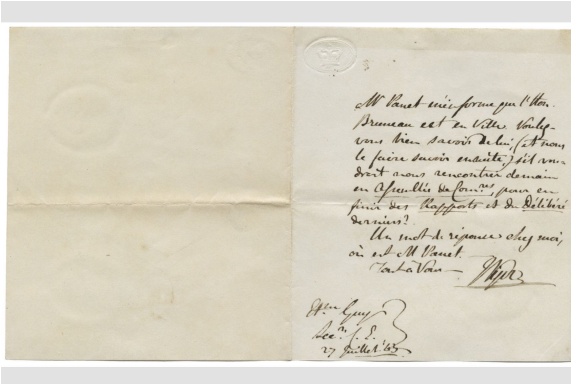 Mr Panet m'informe que l'Hon.
Bruneau est en ville. Voulez-
vous bien savoir de lui, (et nous
le faire savoir ensuite,) s'il vou-
droit nous rencontrer demain
en du Com.res, pour en
finir des Rapports et du Délibéré
derniers?
Un mot de réponse chez moi,
où est Mr Panet.
Tout à Vous
Et.ne Guy
Sec.re C. E.
27 Juillet